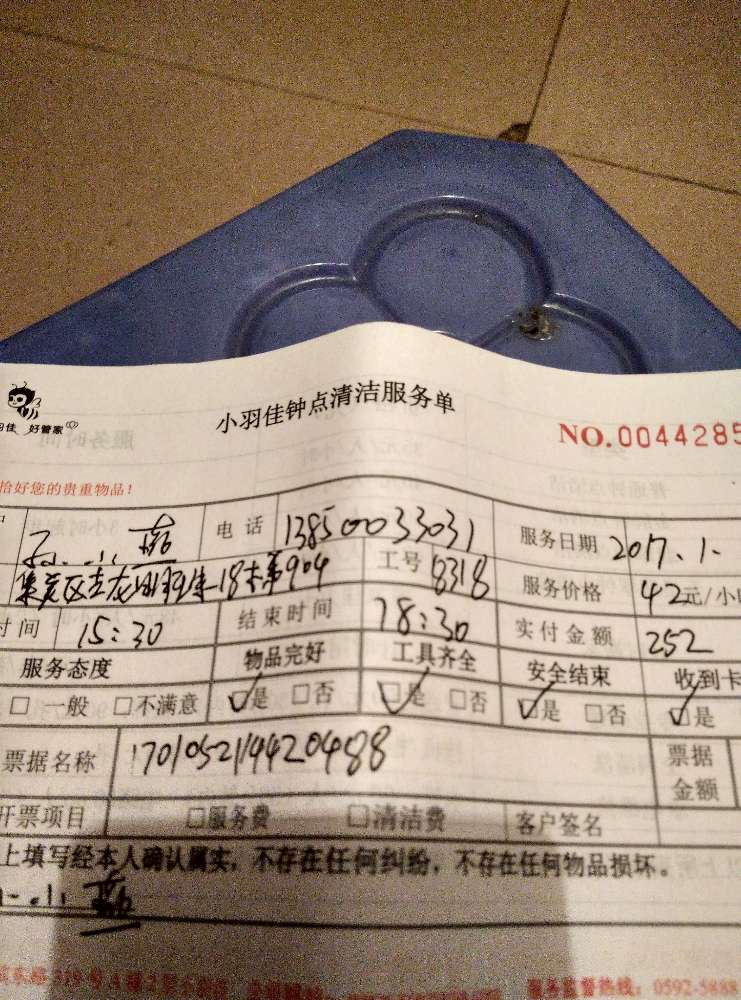 小羽佳钟点清洁服务单
羽佳 好管家
NO.0044285
拾好您的贵重物品!
电话 13850033031 服务日期 2017.1.
18 904 工号 8318 服务价格 42元/小
时间 15:30 结束时间 18:30 实付金额 252
服务态度 物品完好 工具齐全 安全结束 收到卡
□ 一般 □不满意 ☑是 □否 ☑是 □否 ☑是 □否 ☑是
票据名称 1701052114420488 票据金额
开票项目 □服务费 □清洁费 客户签名
上填写经本人确认属实,不存在任何纠纷,不存在任何物品损坏。
服务监督热线:0592-5888